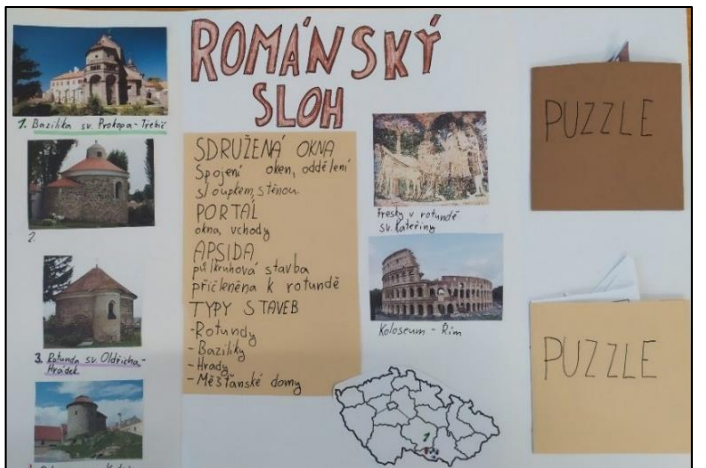 ROMÁNSKÝ
SLOH
1. Bazilika sv. Prokopa - Třebíč
2.
3. Rotunda sv. Oldřicha -
Hrádek
SDRUŽENÁ OKNA
Spojení oken, oddělení
sloupkem, stěnou
PORTÁL
okna, vchody
APSIDA
půlkruhová stavba
přičleněna k rotundě
TYPY STAVEB
- Rotundy
- Baziliky
- Hrady
- Měšťanské domy
Fresky v rotundě
sv. Kateřiny
Koloseum - Řím
1
PUZZLE
PUZZLE